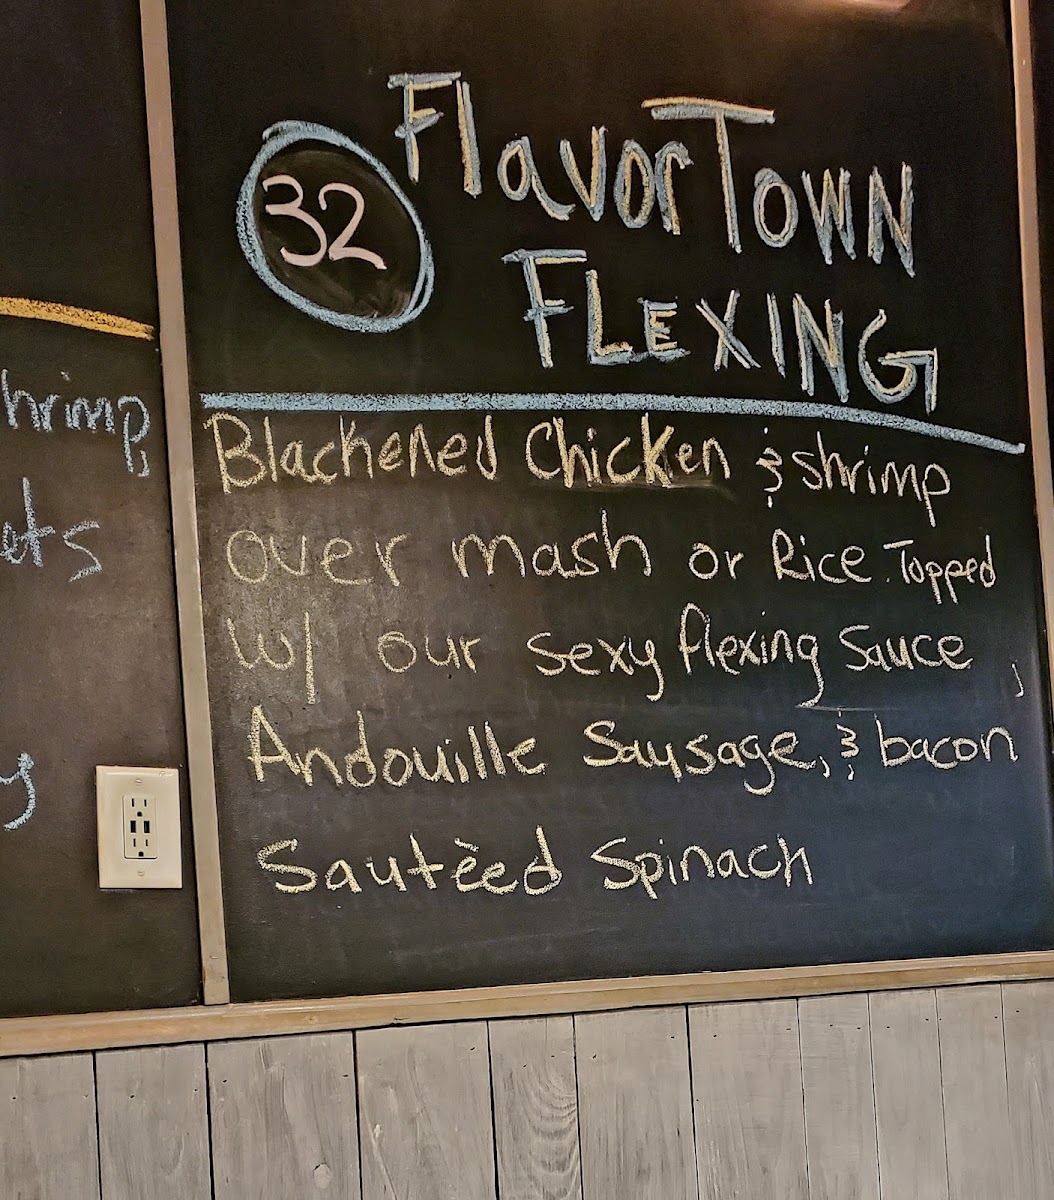 32
FlavorTown
FLEXING
Blackened Chicken & shrimp
over mash or Rice. Topped
w/ our sexy flexing sauce,
Andouille Sausage, & bacon
Sautèed Spinach
hrimp,
ets
y